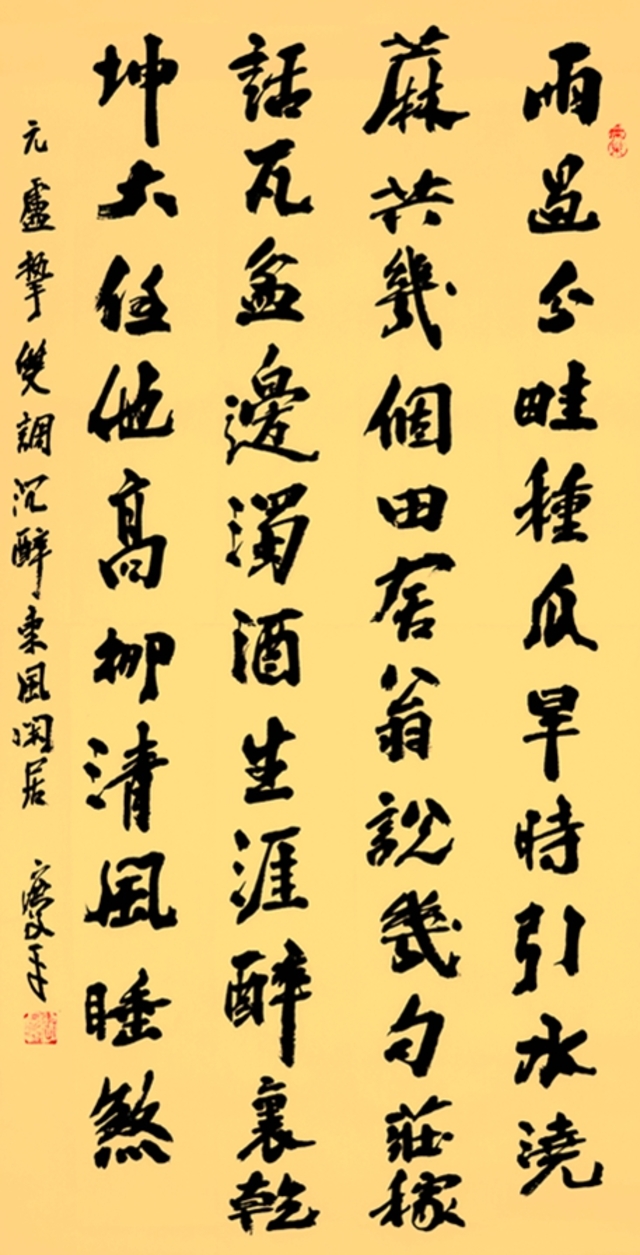 雨過分畦種瓜旱時引水澆
蔴共幾個田舍翁說幾句莊稼
話瓦盆邊濁酒生涯醉裏乾
坤大任他高柳清風睡煞
元盧摯雙調沉醉東風閑居